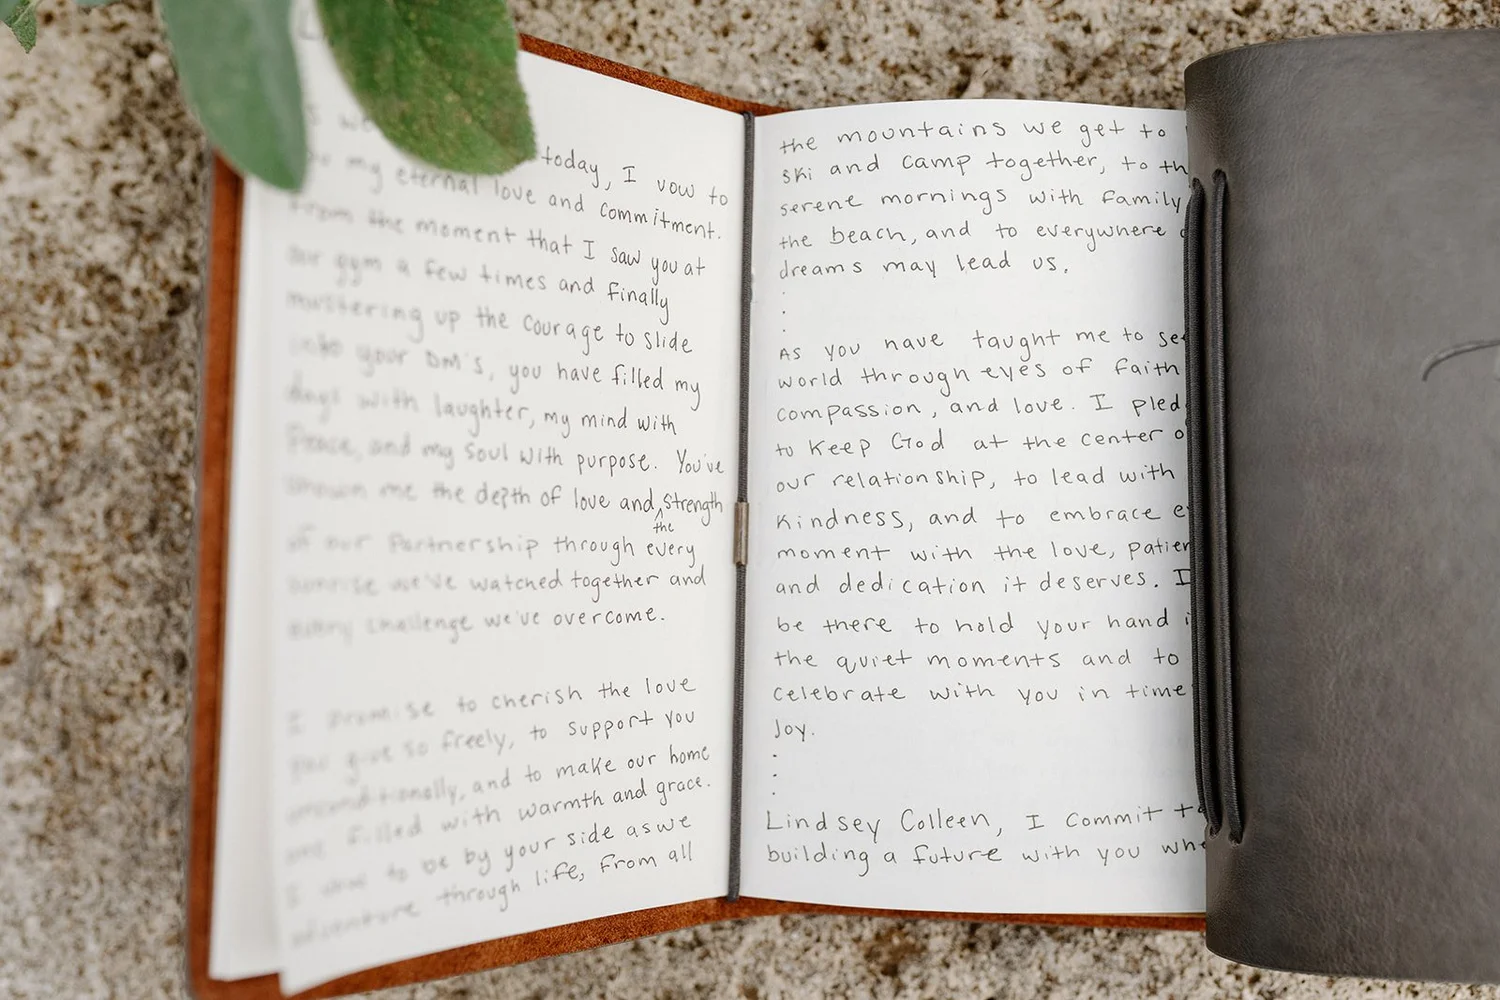 today, I vow to
my eternal love and commitment.
From the moment that I saw you at
our gym a few times and finally
mustering up the courage to slide
into your DM's, you have filled my
days with laughter, my mind with
Peace, and my soul with purpose. You've
shown me the depth of love and strength
the
of our partnership through every
sunrise we've watched together and
every challenge we've overcome.
I promise to cherish the love
you give so freely, to support you
unconditionally, and to make our home
filled with warmth and grace.
I vow to be by your side as we
adventure through life, from all
the mountains we get to
ski and camp together, to th
serene mornings with family
the beach, and to everywhere
dreams may lead us.
.
.
.
As you have taught me to see
world through eyes of faith
compassion, and love. I pled
to keep God at the center o
our relationship, to lead with
kindness, and to embrace e
moment with the love, patien
and dedication it deserves. I
be there to hold your hand i
the quiet moments and to
celebrate with you in time
joy.
.
.
.
Lindsey Colleen, I commit to
building a future with you whe